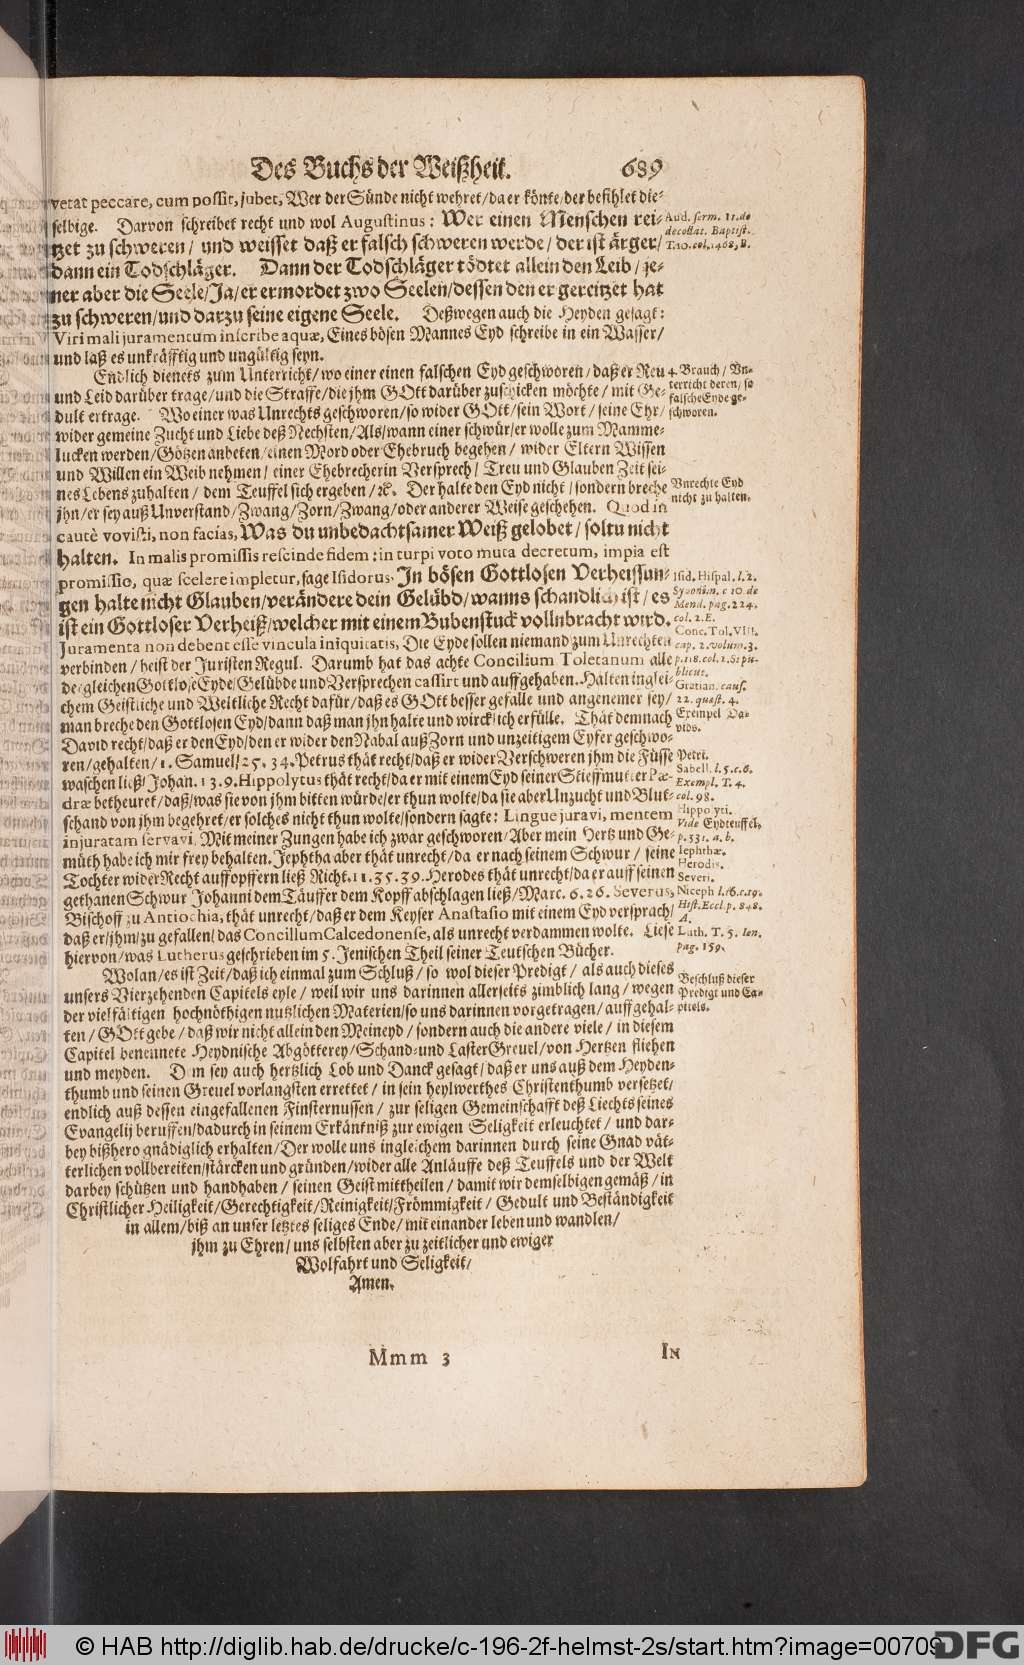 Des Buchs der Weißheit. 689
vetat peccare, cum possit, jubet, Wer der Sünde nicht wehret/da er könte/der befihlet die-
selbige. Darvon schreibet recht und wol Augustinus: Wer einen Menschen rei-
tzet zu schweren/ und weisset daß er falsch schweren werde/ der ist ärger/
dann ein Todschläger. Dann der Todschläger tödtet allein den Leib/ je-
ner aber die Seele/Ja/er ermordet zwo Seelen/dessen den er gereitzet hat
zu schweren/und darzu seine eigene Seele. Deßwegen auch die Heyden gesagt:
Viri mali juramentum inscribe aquæ, Eines bösen Mannes Eyd schreibe in ein Wasser/
und laß es unkräfftig und ungültig seyn.
Aud. serm. 11. de
decollat. Baptist.
T. 10. col. 1468, B.
Endlich dienets zum Unterricht/wo einer einen falschen Eyd geschworen/daß er Reu
und Leid darüber trage/und die Straffe/die jhm GOtt darüber zuschicken möchte/ mit Ge-
dult ertrage. Wo einer was Unrechts geschworen/so wider GOtt/sein Wort/ seine Ehr/
wider gemeine Zucht und Liebe deß Nechsten/Als/wann einer schwür/er wolle zum Mamme-
lucken werden/Götzen anbeten/einen Mord oder Ehebruch begehen/ wider Eltern Wissen
und Willen ein Weib nehmen/ einer Ehebrecherin Versprech/ Treu und Glauben Zeit sei-
nes Lebens zuhalten/ dem Teuffel sich ergeben/ ꝛc. Der halte den Eyd nicht/sondern breche
jhn/er sey auß Unverstand/Zwang/Zorn/Zwang/oder anderer Weise geschehen. Quod in
cautè vovisti, non facias, Was du unbedachtsamer Weiß gelobet/ soltu nicht
halten. In malis promissis rescinde fidem: in turpi voto muta decretum, impia est
promissio, quæ scelere impletur, sage Isidorus. In bösen Gottlosen Verheissun-
gen halte nicht Glauben/verändere dein Gelübd/wanns schandlich ist/ es
ist ein Gottloser Verheiß/welcher mit einem Bubenstuck vollnbracht wird.
Juramenta non debent esse vincula iniquitatis, Die Eyde sollen niemand zum Unrechten
verbinden/ heist der Juristen Regul. Darumb hat das achte Concilium Toletanum alle
dergleichen Gottlose Eyde/Gelübde und Versprechen cassirt und auffgehaben. Halten inglei-
chem Geistliche und Weltliche Recht dafür/daß es GOtt besser gefalle und angenemer sey/
man breche den Gottlosen Eyd/dann daß man jhn halte und wircklich erfülle. Thät demnach
David recht/daß er den Eyd/den er wider den Nabal auß Zorn und unzeitigem Eyfer geschwo-
ren/gehalten/1. Samuel. 25. 34. Petrus thät recht/daß er wider Verschweren jhm die Füsse
waschen ließ/ Johan. 13. 9. Hippolytus thät recht/da er mit einem Eyd seiner Stieffmutter Pæ-
dræ betheuret/daß/was sie von jhm bitten würde/er thun wolte/da sie aber Unzucht und Blut-
schand von jhm begehret/er solches nicht thun wolte/sondern sagte: Lingue juravi, mentem
injuratam servavi. Mit meiner Zungen habe ich zwar geschworen/Aber mein Hertz und Ge-
müth habe ich mir frey behalten. Jephtha aber thät unrecht/da er nach seinem Schwur/ seine
Tochter wider Recht auffopffern ließ Richt. 11. 35. 39. Herodes thät unrecht/da er auff seinen
gethanen Schwur Johanni dem Täuffer dem Kopff abschlagen ließ/Marc. 6. 26. Severus,
Bischoff zu Antiochia, thät unrecht/daß er dem Keyser Anastasio mit einem Eyd versprach/
daß er/jhm/zu gefallen/ das Concillum Calcedonense, als unrecht verdammen wolte. Liese
hiervon/was Lutherus geschrieben im 5. Jenischen Theil seiner Teutschen Bücher.
4. Brauch/ Un-
terricht deren/ so
falsche Eyde ge-
schworen.
Unrechte Eyd
nicht zu halten.
Isid. Hispal. l. 2.
Synonin. c 10. de
Mend. pag. 224.
col. 2. E.
Conc. Tol. VIII.
cap. 2. volum. 3.
p. 118. col. 2. Si pu-
blicus.
Gratian. caus.
22. quæst. 4.
Exempel Da-
vids.
Petri.
Sabell. l. 5. c. 6.
Exempl. T. 4.
col. 98.
Hippolyti.
Vide Eydteuffel,
p. 531. a. b.
Iephthæ.
Herodis.
Severi.
Niceph l. 16. c. 19.
Hist. Eccl p. 848.
A.
Luth. T. 5. Ien.
pag. 159.
Wolan/es ist Zeit/daß ich einmal zum Schluß/ so wol dieser Predigt/ als auch dieses
unsers Vierzehenden Capitels eyle/ weil wir uns darinnen allerseits zimblich lang/ wegen
der vielfältigen hochnöthigen nutzlichen Materien/so uns darinnen vorgetragen/auffgehal-
ten/GOtt gebe/daß wir nicht allein den Meineyd/ sondern auch die andere viele/ in diesem
Capitel benennete Heydnische Abgötterey/Schand- und Laster Greuel/von Hertzen fliehen
und meyden. Dem sey auch hertzlich Lob und Danck gesagt/daß er uns auß dem Heyden-
thumb und seinen Greuel vorlangsten errettet/ in sein heylwerthes Christenthumb versetzet/
endlich auß dessen eingefallenen Finsternussen/ zur seligen Gemeinschafft deß Liechts seines
Evangelij beruffen/dadurch in seinem Erkäntniß zur ewigen Seligkeit erleuchtet/ und dar-
bey bißhero gnädiglich erhalten/Der wolle uns ingleichem darinnen durch seine Gnad vät-
terlichen vollbereiten/stärcken und gründen/wider alle Anläuffe deß Teuffels und der Welt
darbey schützen und handhaben/ seinen Geist mittheilen/ damit wir demselbigen gemäß/ in
Christlicher Heiligkeit/Gerechtigkeit/Reinigkeit/Frömmigkeit/ Gedult und Beständigkeit
in allem/biß an unser letztes seliges Ende/ mit einander leben und wandlen/
jhm zu Ehren/uns selbsten aber zu zeitlicher und ewiger
Wolfahrt und Seligkeit/
Amen.
Beschluß dieser
Predigt und Ca-
pitels.
Mmm 3 In
© HAB http://diglib.hab.de/drucke/c-196-2f-helmst-2s/start.htm?image=00709
DFG